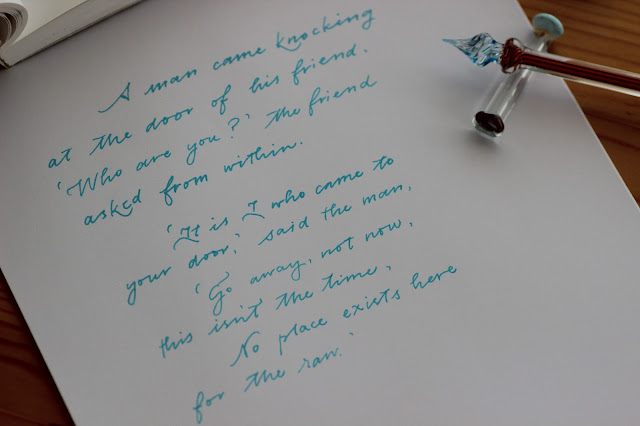 A man came knocking
at the door of his friend.
'Who are you?' the friend
asked from within.
'It is I who came to
your door,' said the man,
'Go away, not now,
this isn't the time,
No place exists here
for the raw.'